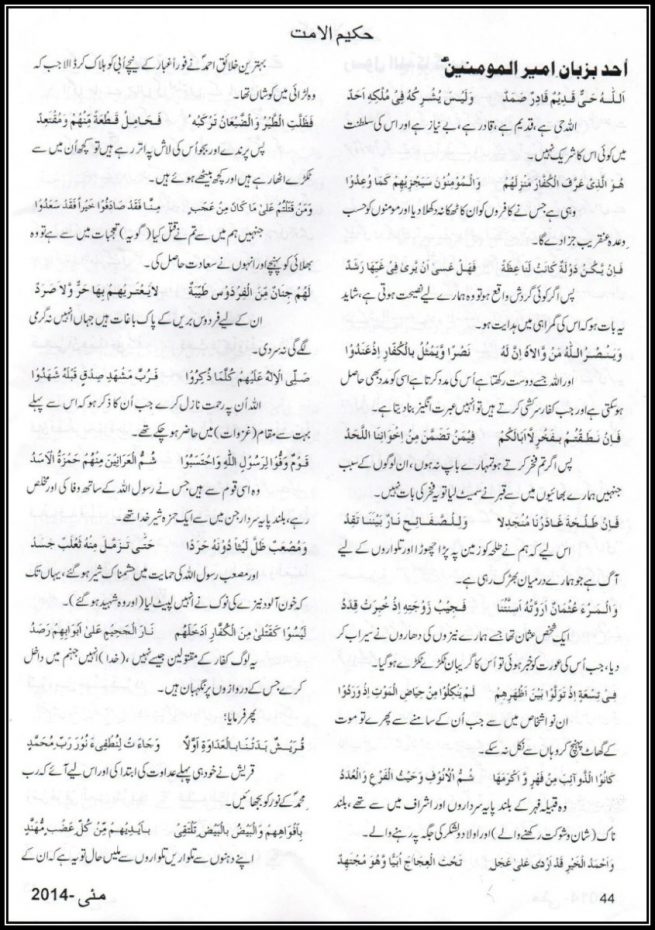 حکیم الامت
اُحد بزبان امیر المومنینؑ
اَللّٰهُ حَیٌّ قَدِیْمٌ قَادِرٌ صَمَدٌ وَلَیْسَ یَشْرِکُهٗ فِیْ مُلْکِهٖ اَحَدٌ
اللہ حی ہے، قدیم ہے، قادر ہے، بے نیاز ہے اور اس کی سلطنت
میں کوئی اس کا شریک نہیں۔
هُوَ الَّذِیْ عَرَّفَ الْکُفَّارَ مَنْزِلَهُمْ وَالْمُؤْمِنُوْنَ سَیَجْزِیْهِمْ کَمَا وُعِدُوْا
وہی ہے جس نے کافروں کو ان کا ٹھکانہ دکھلا دیا اور مومنوں کو حسب
وعدہ عنقریب جزا دے گا۔
فَاِنْ یَکُنْ دَوْلَةٌ کَانَتْ لَنَا عِظَةً فَهَلْ عَسٰی اَنْ یُرٰی فِیْ غَیِّهَا رَشَدٌ
پس اگر کوئی گردش واقع ہو تو وہ ہمارے لیے نصیحت ہوتی ہے، شاید
یہ بات ہو کہ اس کی گمراہی میں ہدایت ہو۔
وَیَنْصُرُ اللّٰهُ مَنْ وَّالَاهُ اِنَّ لَهٗ نَصْرًا وَّیُمَثِّلُ بِالْکُفَّارِ اِذْ عَنَدُوْا
اور اللہ جسے دوست رکھتا ہے اُس کی مدد کرتا ہے اسی کو مدد بھی حاصل
ہو سکتی ہے اور جب کفار سرکشی کرتے ہیں تو انہیں عبرت انگیز بنا دیتا ہے۔
فَاِنْ نَطَقْتُمْ بِفَخْرٍ لَّا اَبَالَکُمْ فِیْمَنْ تَضَمَّنَ مِنْ اِخْوَانِنَا اللَّحَدُ
پس اگر تم فخر کرتے ہو تمہارے باپ نہ ہوں، ان لوگوں کے سبب
جنہیں ہمارے بھائیوں میں سے قبر نے سمیٹ لیا تو یہ فخر کی بات نہیں۔
فَاِنَّ طَلْحَةَ غَادَرْنَا مُنْجَدِلًا وَلِلصَّفَائِحِ نَارٌ بَیْنَنَا تَقِدُ
اس لیے کہ ہم نے طلحہ کو زمین پر پڑا چھوڑا اور تلواروں کے لیے
آگ ہے جو ہمارے درمیان بھڑک رہی ہے۔
وَالْمَرْءُ عُثْمَانُ اَرْوَتْهُ اَسِنَّتُنَا فَجَیْبُ زَوْجَتِهٖ اِذْ خُبِّرَتْ قِدَدُ
ایک شخص عثمان تھا جسے ہمارے نیزوں کی دھاروں نے سیراب کر
دیا، جب اُس کی عورت کو خبر ہوئی تو اُس کا گریبان ٹکڑے ٹکڑے ہو گیا۔
فِیْ تِسْعَةٍ اِذْ تَوَلَّوْا بَیْنَ اَظْهُرِهِمْ لَمْ یَنْکِلُوْا مِنْ حِیَاضِ الْمَوْتِ اِذْ وَرَدُوْا
ان نو اشخاص میں سے جب اُن کے سامنے سے پھرے تو موت
کے گھاٹ پہنچ کر وہاں سے نکل نہ سکے۔
کَانُوا الذَّوَآئِبَ مِنْ فِهْرٍ وَّ اَکْرَمَهَا شُمُّ الْاُنُوْفِ وَحَیْثُ الْفَرْعُ وَالْعَدَدُ
وہ قبیلہ فہر کے بلند پایہ سرداروں اور اشراف میں سے تھے، بلند
ناک (شان و شوکت رکھنے والے) اور اولاد و لشکر کی جگہ پر رہنے والے۔
وَاَحْمَدُ الْخَیْرِ قَدْ اَرْدٰی عَلٰی عَجَلٍ تَحْتَ الْعَجَاجِ اُبَیًّا وَّهُوَ مُجْتَهِدٌ
بہترین خلائق احمدؐ نے فوراً غبار کے نیچے اُبی کو ہلاک کر ڈالا جب کہ
وہ لڑائی میں کوشاں تھا۔
فَظَلَّتِ الطَّیْرُ وَالضِّبْعَانُ تَرْکَبُهٗ فَحَامِلٌ قِطْعَةً مِّنْهُمْ وَمُقْتَعِدٌ
پس پرندے اور بجو اُس کی لاش پر اتر رہے ہیں تو کچھ اُن میں سے
ٹکڑے اٹھا رہے ہیں اور کچھ بیٹھے ہوئے ہیں۔
وَمَنْ قَتَلْتُمْ عَلٰی مَا کَانَ مِنْ عَجَبٍ مِنَّا فَقَدْ صَادَفُوْا خَیْراً فَقَدْ سَعِدُوْا
جنہیں ہم میں سے تم نے قتل کیا (گویہ) تعجبات میں سے ہے تو وہ
بھلائی کو پہنچے اور انہوں نے سعادت حاصل کی۔
لَهُمْ جِنَانٌ مِّنَ الْفِرْدَوْسِ طَیِّبَةٌ لَا یَعْتَرِیْهِمْ بِهَا حَرٌّ وَّلَا صَرَدٌ
ان کے لیے فردوس بریں کے پاک باغات ہیں جہاں انہیں نہ گرمی
لگے گی نہ سردی۔
صَلَّی الْاِلٰهُ عَلَیْهِمْ کُلَّمَا ذُکِرُوْا فَرُبَّ مَشْهَدِ صِدْقٍ قَبْلَهٗ شَهِدُوْا
اللہ اُن پر رحمت نازل کرے جب اُن کا ذکر ہو کہ اس سے پہلے
بہت سے مقام (غزوات) میں حاضر ہو چکے تھے۔
قَوْمٌ وَّفَوْا لِرَسُوْلِ اللّٰهِ وَاحْتَسَبُوْا شُمُّ الْعَرَانِیْنِ مِنْهُمْ حَمْزَةُ الْاَسَدُ
وہ اسی قوم سے ہیں جس نے رسول اللہ کے ساتھ وفا کی اور مخلص
رہے، بلند پایہ سردار جن میں سے ایک حمزہ شیر خدا تھے۔
وَمُصْعَبٌ ظَلَّ لَیْثًا دُوْنَهٗ حَرِدًا حَتّٰی تَزَمَّلَ مِنْهُ ثَعْلَبٌ جَسَدٌ
اور مصعب رسول اللہ کی حمایت میں خشمناک شیر ہو گئے، یہاں تک
کہ خون آلود نیزے کی نوک نے انہیں لپیٹ لیا (اور وہ شہید ہو گئے)۔
لَیْسُوْا کَقَتْلٰی مِنَ الْکُفَّارِ اَدْخَلَهُمْ نَارَ الْجَحِیْمِ عَلٰی اَبْوَابِهِمْ رَصَدٌ
یہ لوگ کفار کے مقتولین جیسے نہیں، (خدا) انہیں جہنم میں داخل
کرے جس کے دروازوں پر نگہبان ہیں۔
پھر فرمایا:
قُرَیْشٌ بَدَتْنَا بِالْعَدَاوَةِ اَوَّلًا وَجَاءَتْ لِتُطْفِیءَ نُوْرَ رَبِّ مُحَمَّدٍ
قریش نے خود ہی پہلے عداوت کی ابتدا کی اور اس لیے آئے کہ رب
محمدؐ کے نور کو بجھائیں۔
بِاَفْوَاهِهِمْ وَالْبِیْضُ بِالْبِیْضِ تَلْتَقِیْ بِاَیْدِیْهِمْ مِنْ کُلِّ عَضْبٍ مُّهَنَّدٍ
اپنے دہنوں سے تلواریں تلواروں سے ملیں حال تو یہ ہے کہ ان کے
44
مئی -2014